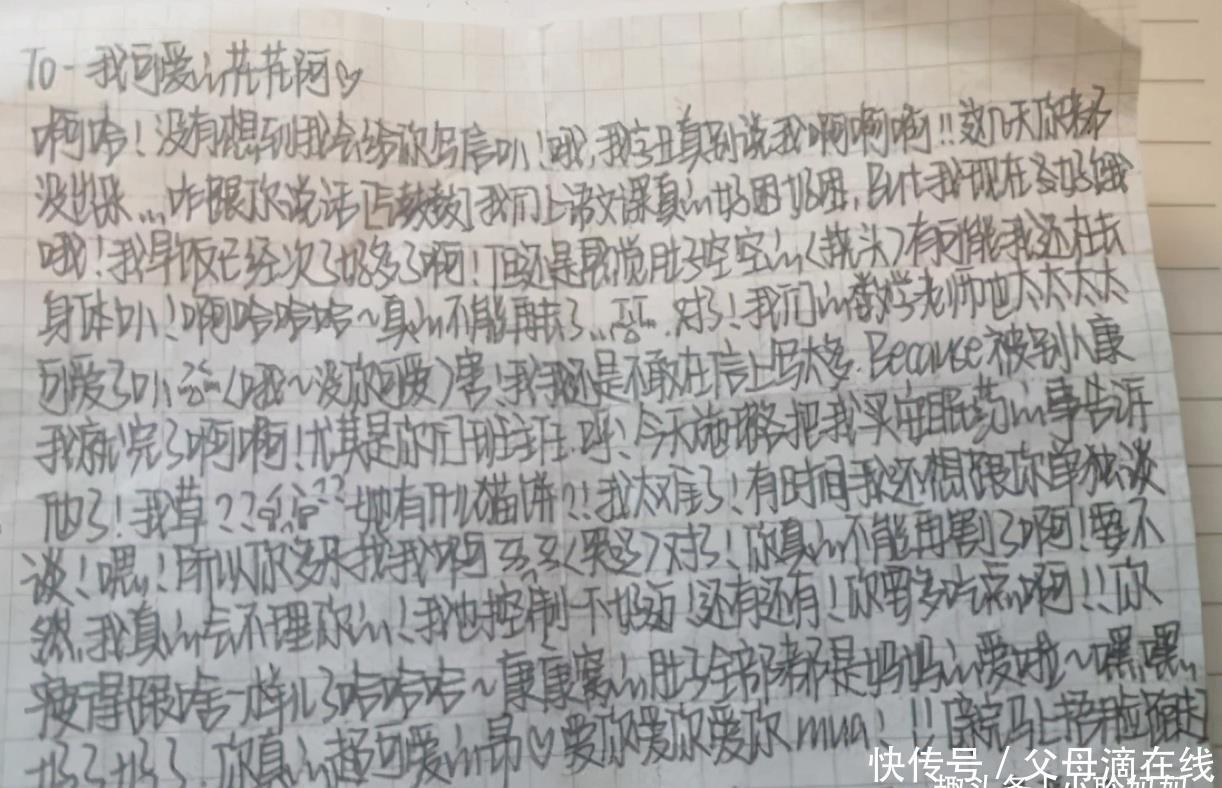 To - 我可爱的花花阿♡
啊哈！没有想到我会给你写信叭！哦，我字丑真别说我啊啊啊!! 这几天你来都
没出来... 咋跟你说话 我们上语文课真的好困好困，But我现在好饿
哦！我早饭已经次了好多了啊！但还是感觉肚子空空的（挠头）有可能我还在长
身体叭！啊哈哈哈哈~真的不能再长了... 对了！我们的数学老师也太太太太
可爱了叭（哦~没你可爱）害！我还是不敢在信上写太多. Because被别人康
我就完了啊啊！尤其是你们班主任. 呼！今天她把我买安眠药的事告诉
他了！我草？？她有什么猫饼？！我太难了！有时间我还想跟你单独谈
谈！嘿！所以你多来找我啊（哭泣）对了！你真的不能再割了啊！要不
然，我真的会不理你的！我也控制不好！还有还有！你要多吃点啊!! 你
瘦得跟啥一样儿了哈哈哈~康康窝的肚子全部都是妈妈的爱啦~嘿嘿
好了好了. 你真的超可爱的昂♡爱你爱你爱你mua！!!
快传号 / 父母滴在线